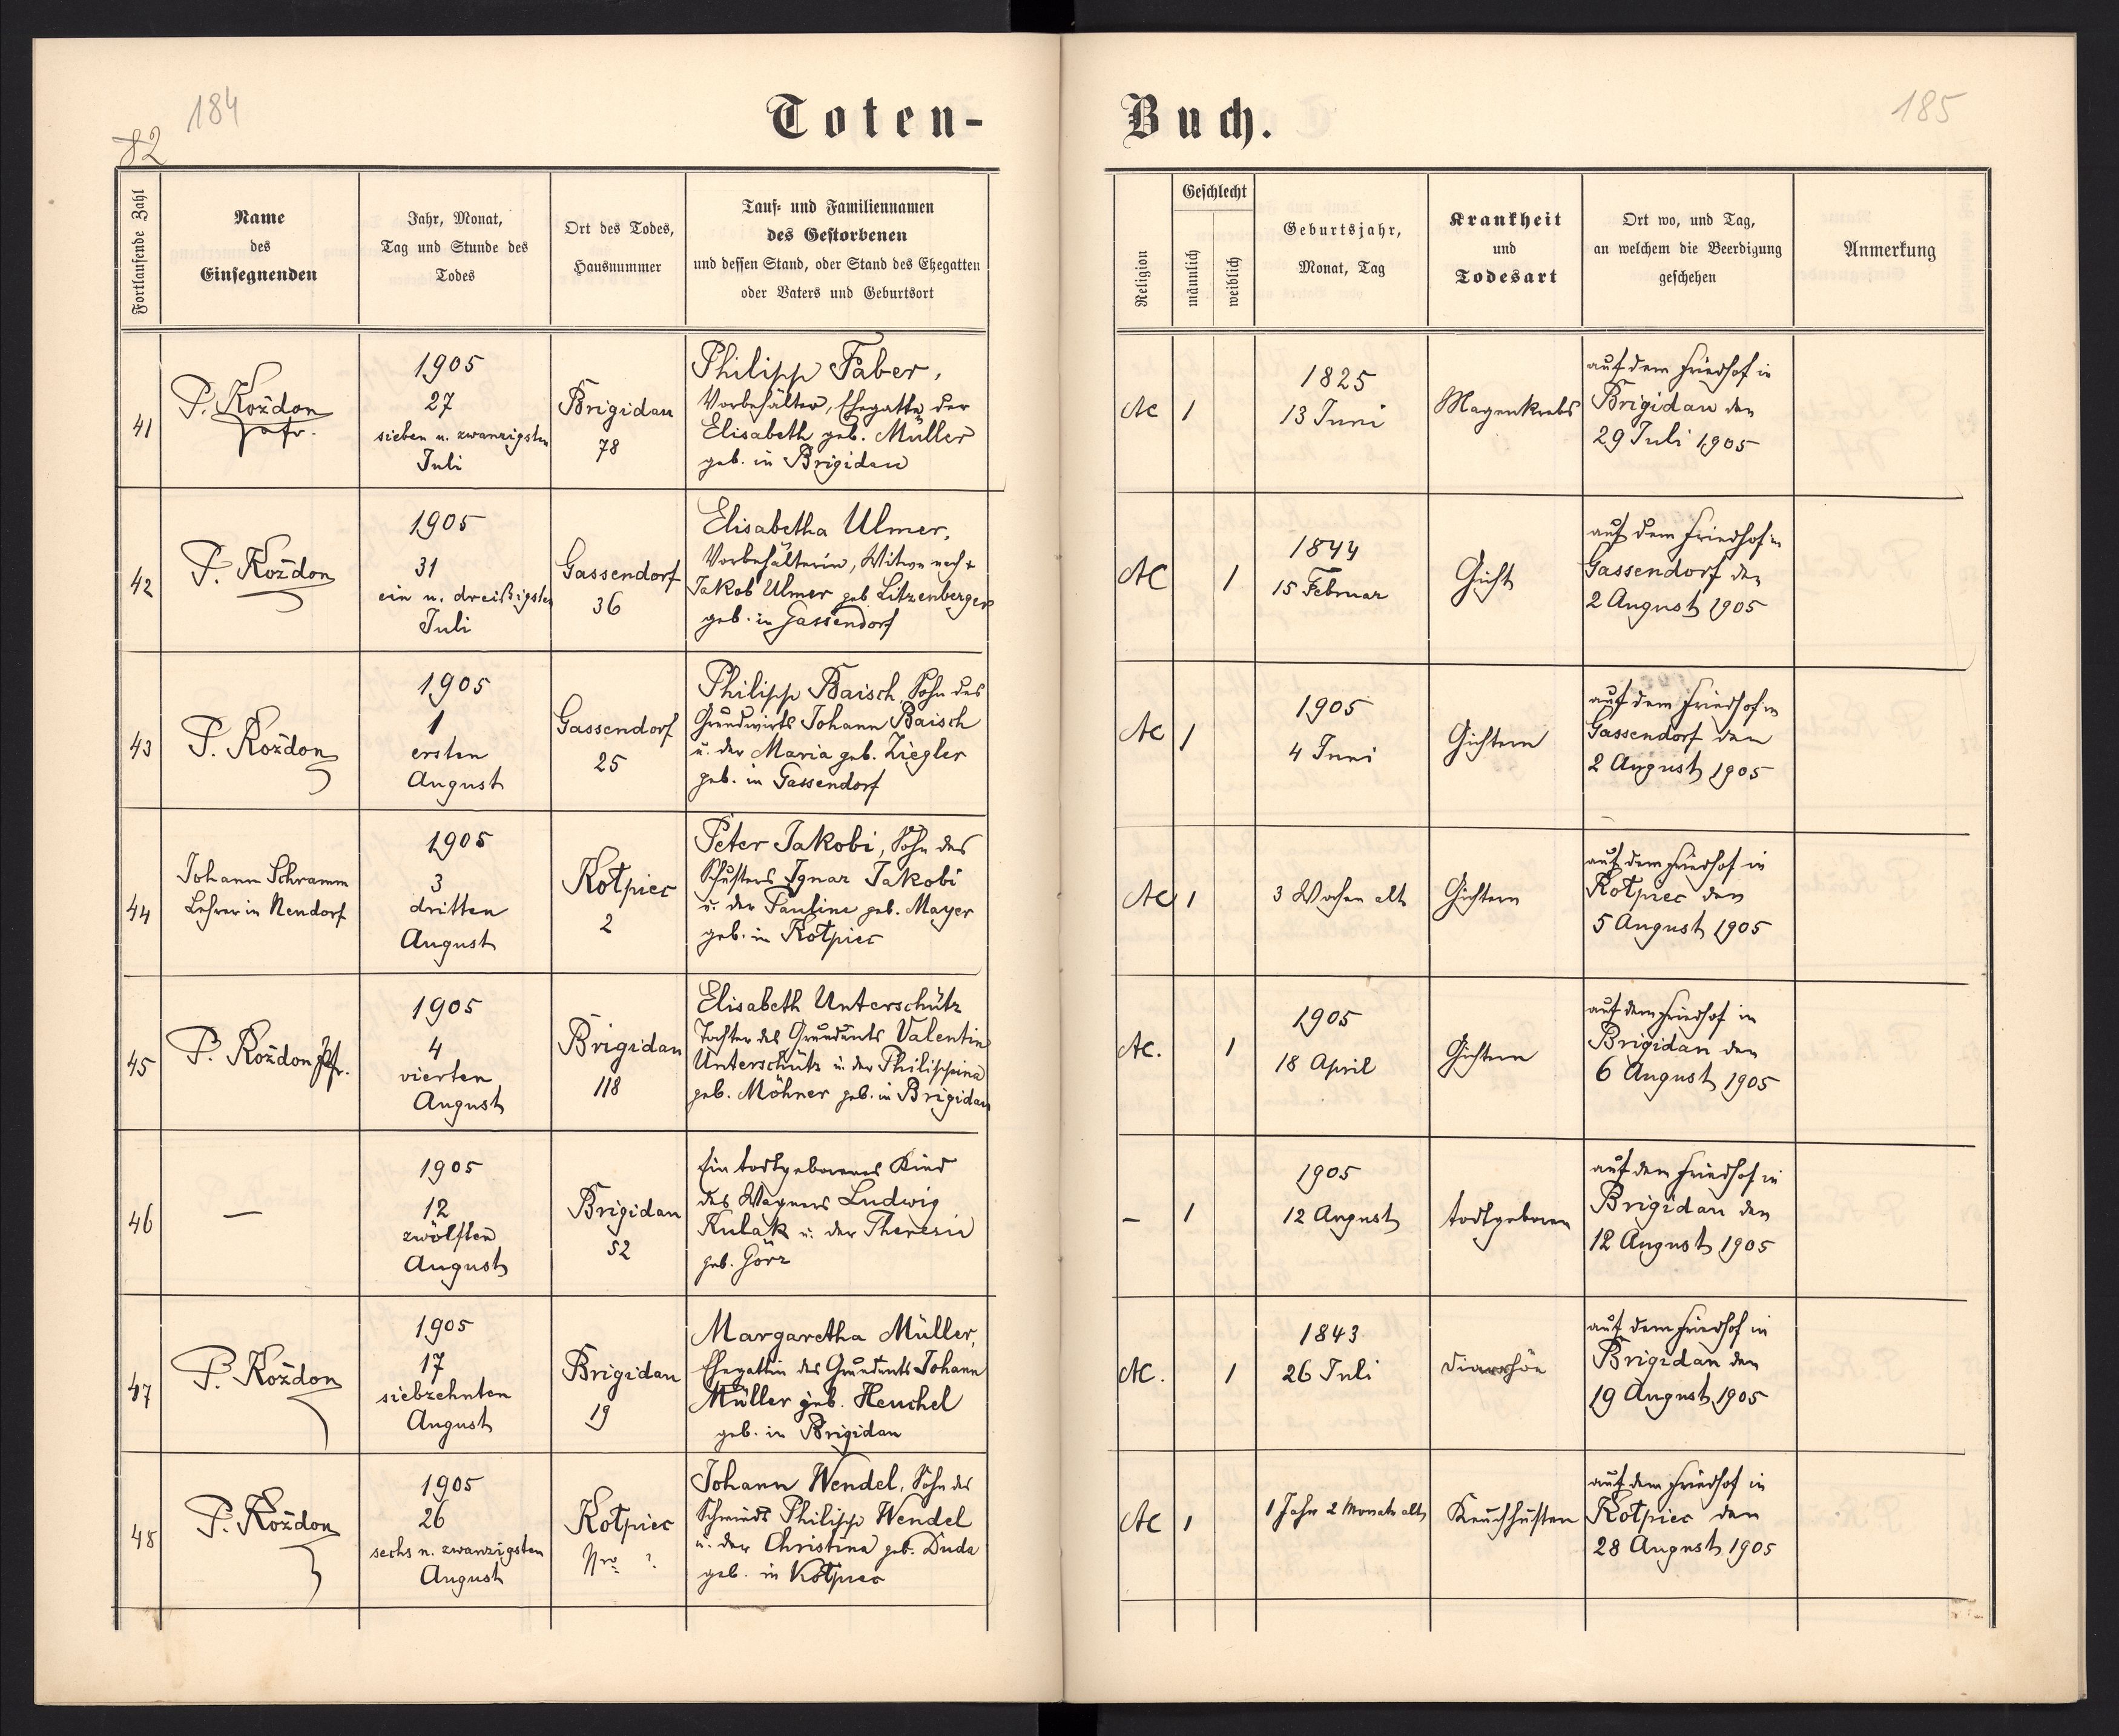 184
82
Toten-
Fortlaufende Zahl
Name
des
Einsegnenden
Jahr, Monat,
Tag und Stunde des
Todes
Ort des Todes,
Hausnummer
Tauf- und Familiennamen
des Gestorbenen
und dessen Stand, oder Stand des Ehegatten
oder Vaters und Geburtsort
41
P. Koždon
1905
27
sieben u. zwanzigsten
Juli
Brigidau
78
Philipp Faber,
Vorbehälter, Ehegatte der
Elisabeth geb. Müller
geb. in Brigidau
42
P. Koždon
1905
31
ein u. dreißigsten
Juli
Gassendorf
36
Elisabetha Ulmer,
Vorbehälterin, Witwe nach +
Jakob Ulmer geb Litzenberger
geb. in Gassendorf
43
P. Koždon
1905
1
ersten
August
Gassendorf
25
Philipp Baisch Sohn des
Grundwirts Johann Baisch
u. der Maria geb. Ziegler
geb. in Gassendorf
44
Johann Schramm
Lehrer in Neudorf
1905
3
dritten
August
Kotpiec
2
Peter Jakobi, Sohn des
Schusters Ignaz Jakobi
u. der Pauline geb. Mayer
geb. in Kotpiec
45
P. Koždon Pfr.
1905
4
vierten
August
Brigidau
118
Elisabeth Unterschütz
Tochter des Grundwirts Valentin
Unterschütz u. der Philippina
geb. Möhner geb. in Brigidau
46
—
1905
12
zwölften
August
Brigidau
52
Ein todtgeborenes Kind
des Wagners Ludwig
Kulak u. der Theresia
geb. Görz
47
P. Koždon
1905
17
siebzehnten
August
Brigidau
19
Margaretha Müller,
Ehegattin des Grundwirts Johann
Müller geb. Heuchel
geb. in Brigidau
48
P. Koždon
1905
26
sechs u. zwanzigsten
August
Kotpiec
Nro ?
Johann Wendel, Sohn des
Schmieds Philipp Wendel
u. der Christina geb. Duda
geb. in Kotpiec
185
Buch.
Religion
Geschlecht
männlich
weiblich
Geburtsjahr,
Monat, Tag
Krankheit
und
Todesart
Ort wo, und Tag,
an welchem die Beerdigung
geschehen
Anmerkung
AC
1
1825
13 Juni
Magenkrebs
auf dem Friedhof in
Brigidau den
29 Juli 1905
AC
1
1844
15 Februar
Gicht
auf dem Friedhof in
Gassendorf den
2 August 1905
AC
1
1905
4 Juni
Gichtern
auf dem Friedhof in
Gassendorf den
2 August 1905
AC
1
3 Wochen alt
Gichtern
auf dem Friedhof in
Kotpiec den
5 August 1905
AC.
1
1905
18 April
Gichtern
auf dem Friedhof in
Brigidau den
6 August 1905
–
1
1905
12 August
todtgeboren
auf dem Friedhof in
Brigidau den
12 August 1905
AC.
1
1843
26 Juli
Diarrhöe
auf dem Friedhof in
Brigidau den
19 August 1905
AC
1
1 Jahr 2 Monate alt
Keuchhusten
auf dem Friedhof in
Kotpiec den
28 August 1905